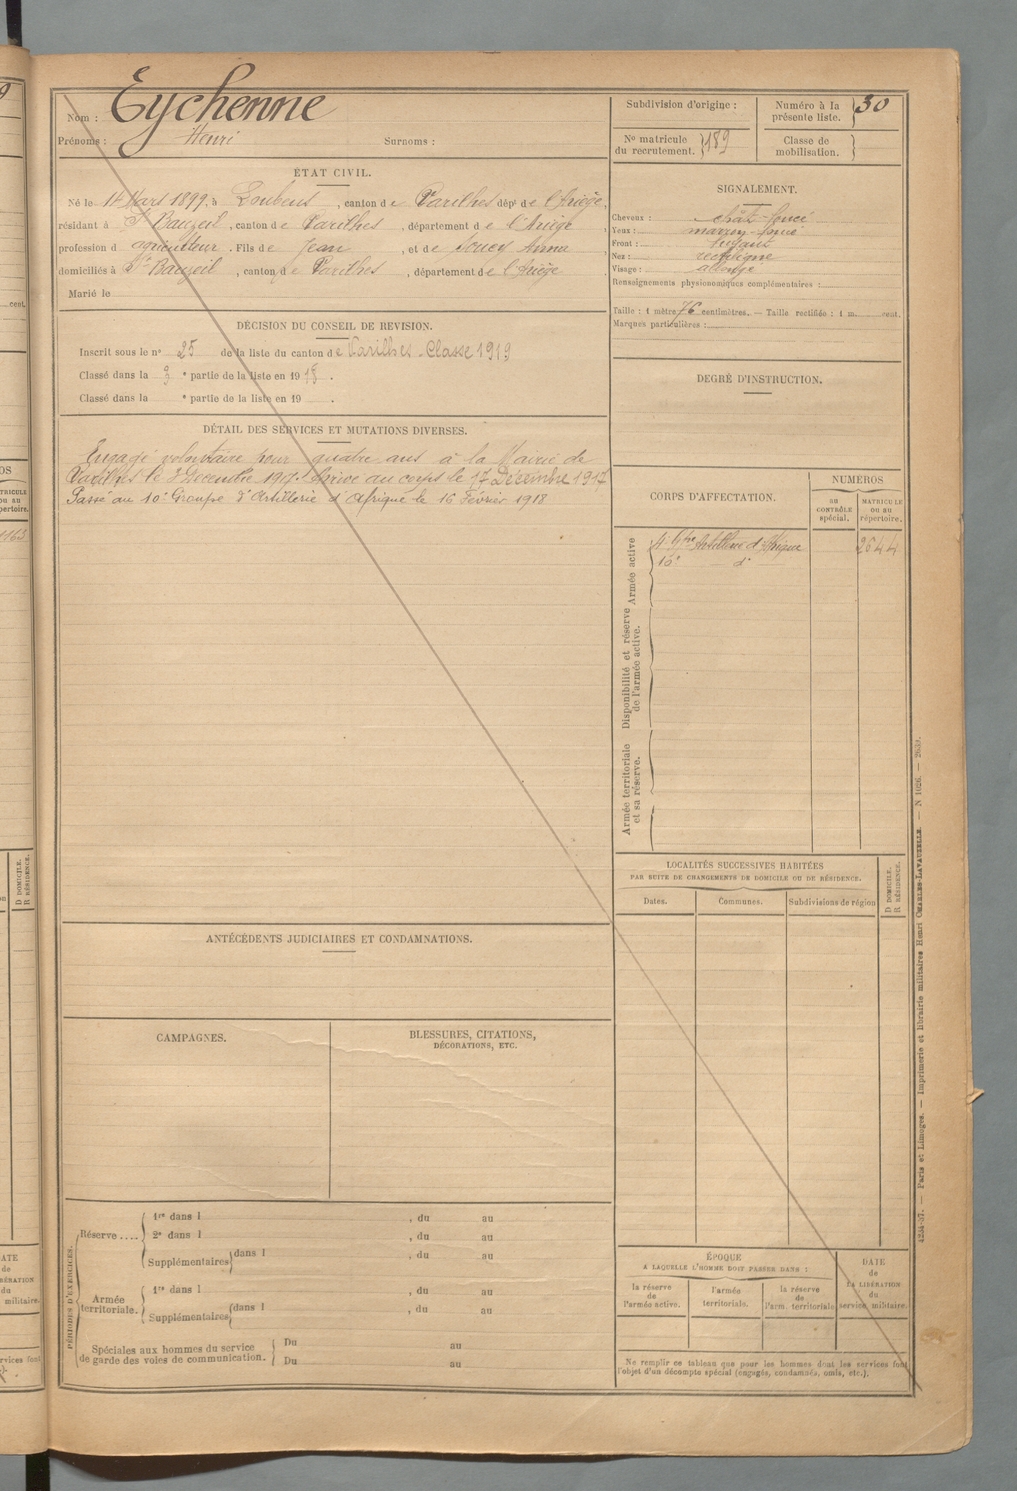 Nom : Eychenne
Prénoms : Henri Surnoms :
Subdivision d'origine :
Numéro à la présente liste. 30
No matricule du recrutement. 189
Classe de mobilisation.
ÉTAT CIVIL.
Né le 14 Mars 1899, à Loubens, canton de Varilhes dépt de l'Ariège,
résidant à St Bauzeil, canton de Varilhes, département de l'Ariège,
profession d agriculteur. Fils de Jean, et de Soucy Anna
domiciliés à St Bauzeil, canton de Varilhes, département de l'Ariège
Marié le
SIGNALEMENT.
Cheveux : chât-foncé
Yeux : marron-foncé
Front : fuyant
Nez : rectiligne
Visage : allongé
Renseignements physionomiques complémentaires :
Taille : 1 mètre 76 centimètres. — Taille rectifiée : 1 m. cent.
Marques particulières :
DÉCISION DU CONSEIL DE REVISION.
Inscrit sous le no 25 de la liste du canton de Varilhes. Classe 1919
Classé dans la 3 e partie de la liste en 1918.
Classé dans la e partie de la liste en 19 .
DEGRÉ D'INSTRUCTION.
DÉTAIL DES SERVICES ET MUTATIONS DIVERSES.
Engagé volontaire pour quatre ans à la Mairie de
Varilhes le 3 Décembre 1917. Arrivé au corps le 17 Décembre 1917
Passé au 10e Groupe d'Artillerie d'Afrique le 16 Février 1918
CORPS D'AFFECTATION.
NUMÉROS
au CONTRÔLE spécial.
MATRICULE ou au répertoire.
Armée active
Artillerie d'Afrique 2644
10e d°
Disponibilité et réserve de l'armée active.
Armée territoriale et sa réserve.
LOCALITÉS SUCCESSIVES HABITÉES
PAR SUITE DE CHANGEMENTS DE DOMICILE OU DE RÉSIDENCE.
Dates. Communes. Subdivisions de région
D DOMICILE.
R RÉSIDENCE.
ANTÉCÉDENTS JUDICIAIRES ET CONDAMNATIONS.
CAMPAGNES.
BLESSURES, CITATIONS,
DÉCORATIONS, ETC.
PÉRIODES D'EXERCICES.
Réserve ....
1re dans l , du au
2e dans l , du au
Supplémentaires dans l , du au
Armée territoriale.
1re dans l , du au
Supplémentaires dans l , du au
Spéciales aux hommes du service de garde des voies de communication.
Du au
Du au
ÉPOQUE
A LAQUELLE L'HOMME DOIT PASSER DANS :
la réserve de l'armée active.
l'armée territoriale.
la réserve de l'arm. territoriale
DATE de LA LIBÉRATION du service militaire.
Ne remplir ce tableau que pour les hommes dont les services font
l'objet d'un décompte spécial (engagés, condamnés, omis, etc.).
— Paris et Limoges. — Imprimerie et librairie militaires Henri CHARLES-LAVAUZELLE. — N 1026. —